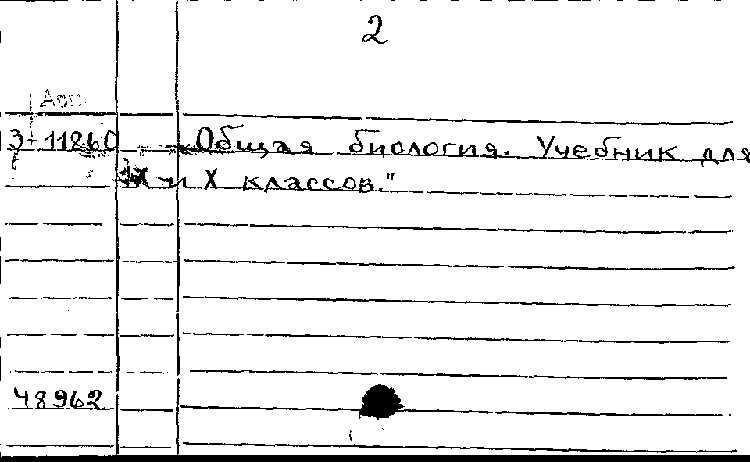 2
Доп.
3-11860 Общая биология. Учебник для
IX и X классов."
48962